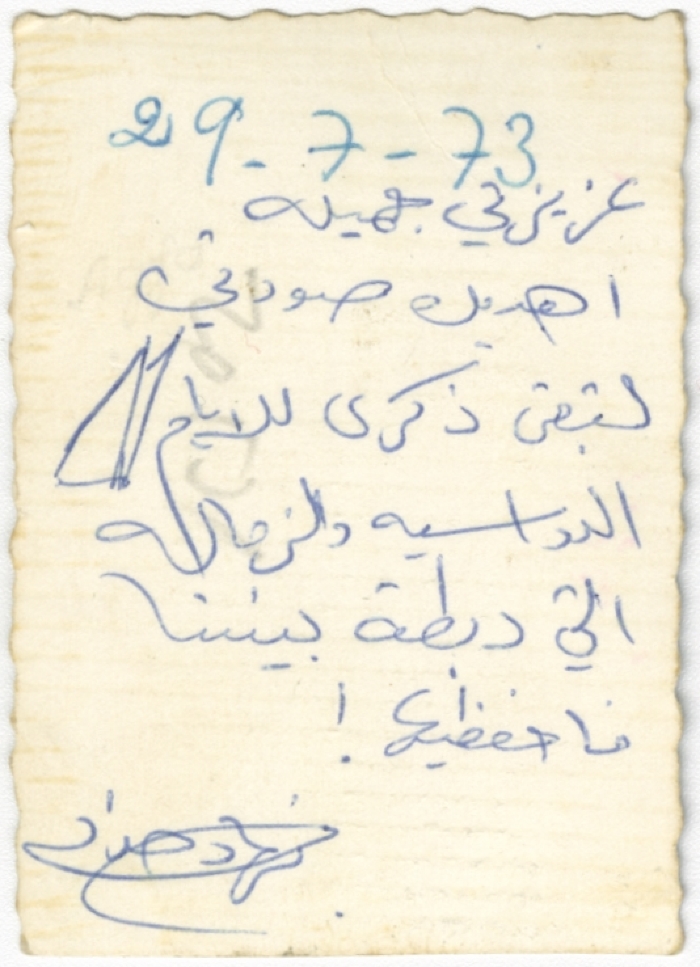 29-7-73
عزيزتي جميله
اهديك صورتي
لتبقى ذكرى للايام
الدراسيه والزماله
التي ربطة بيننا
فاحفظيها !